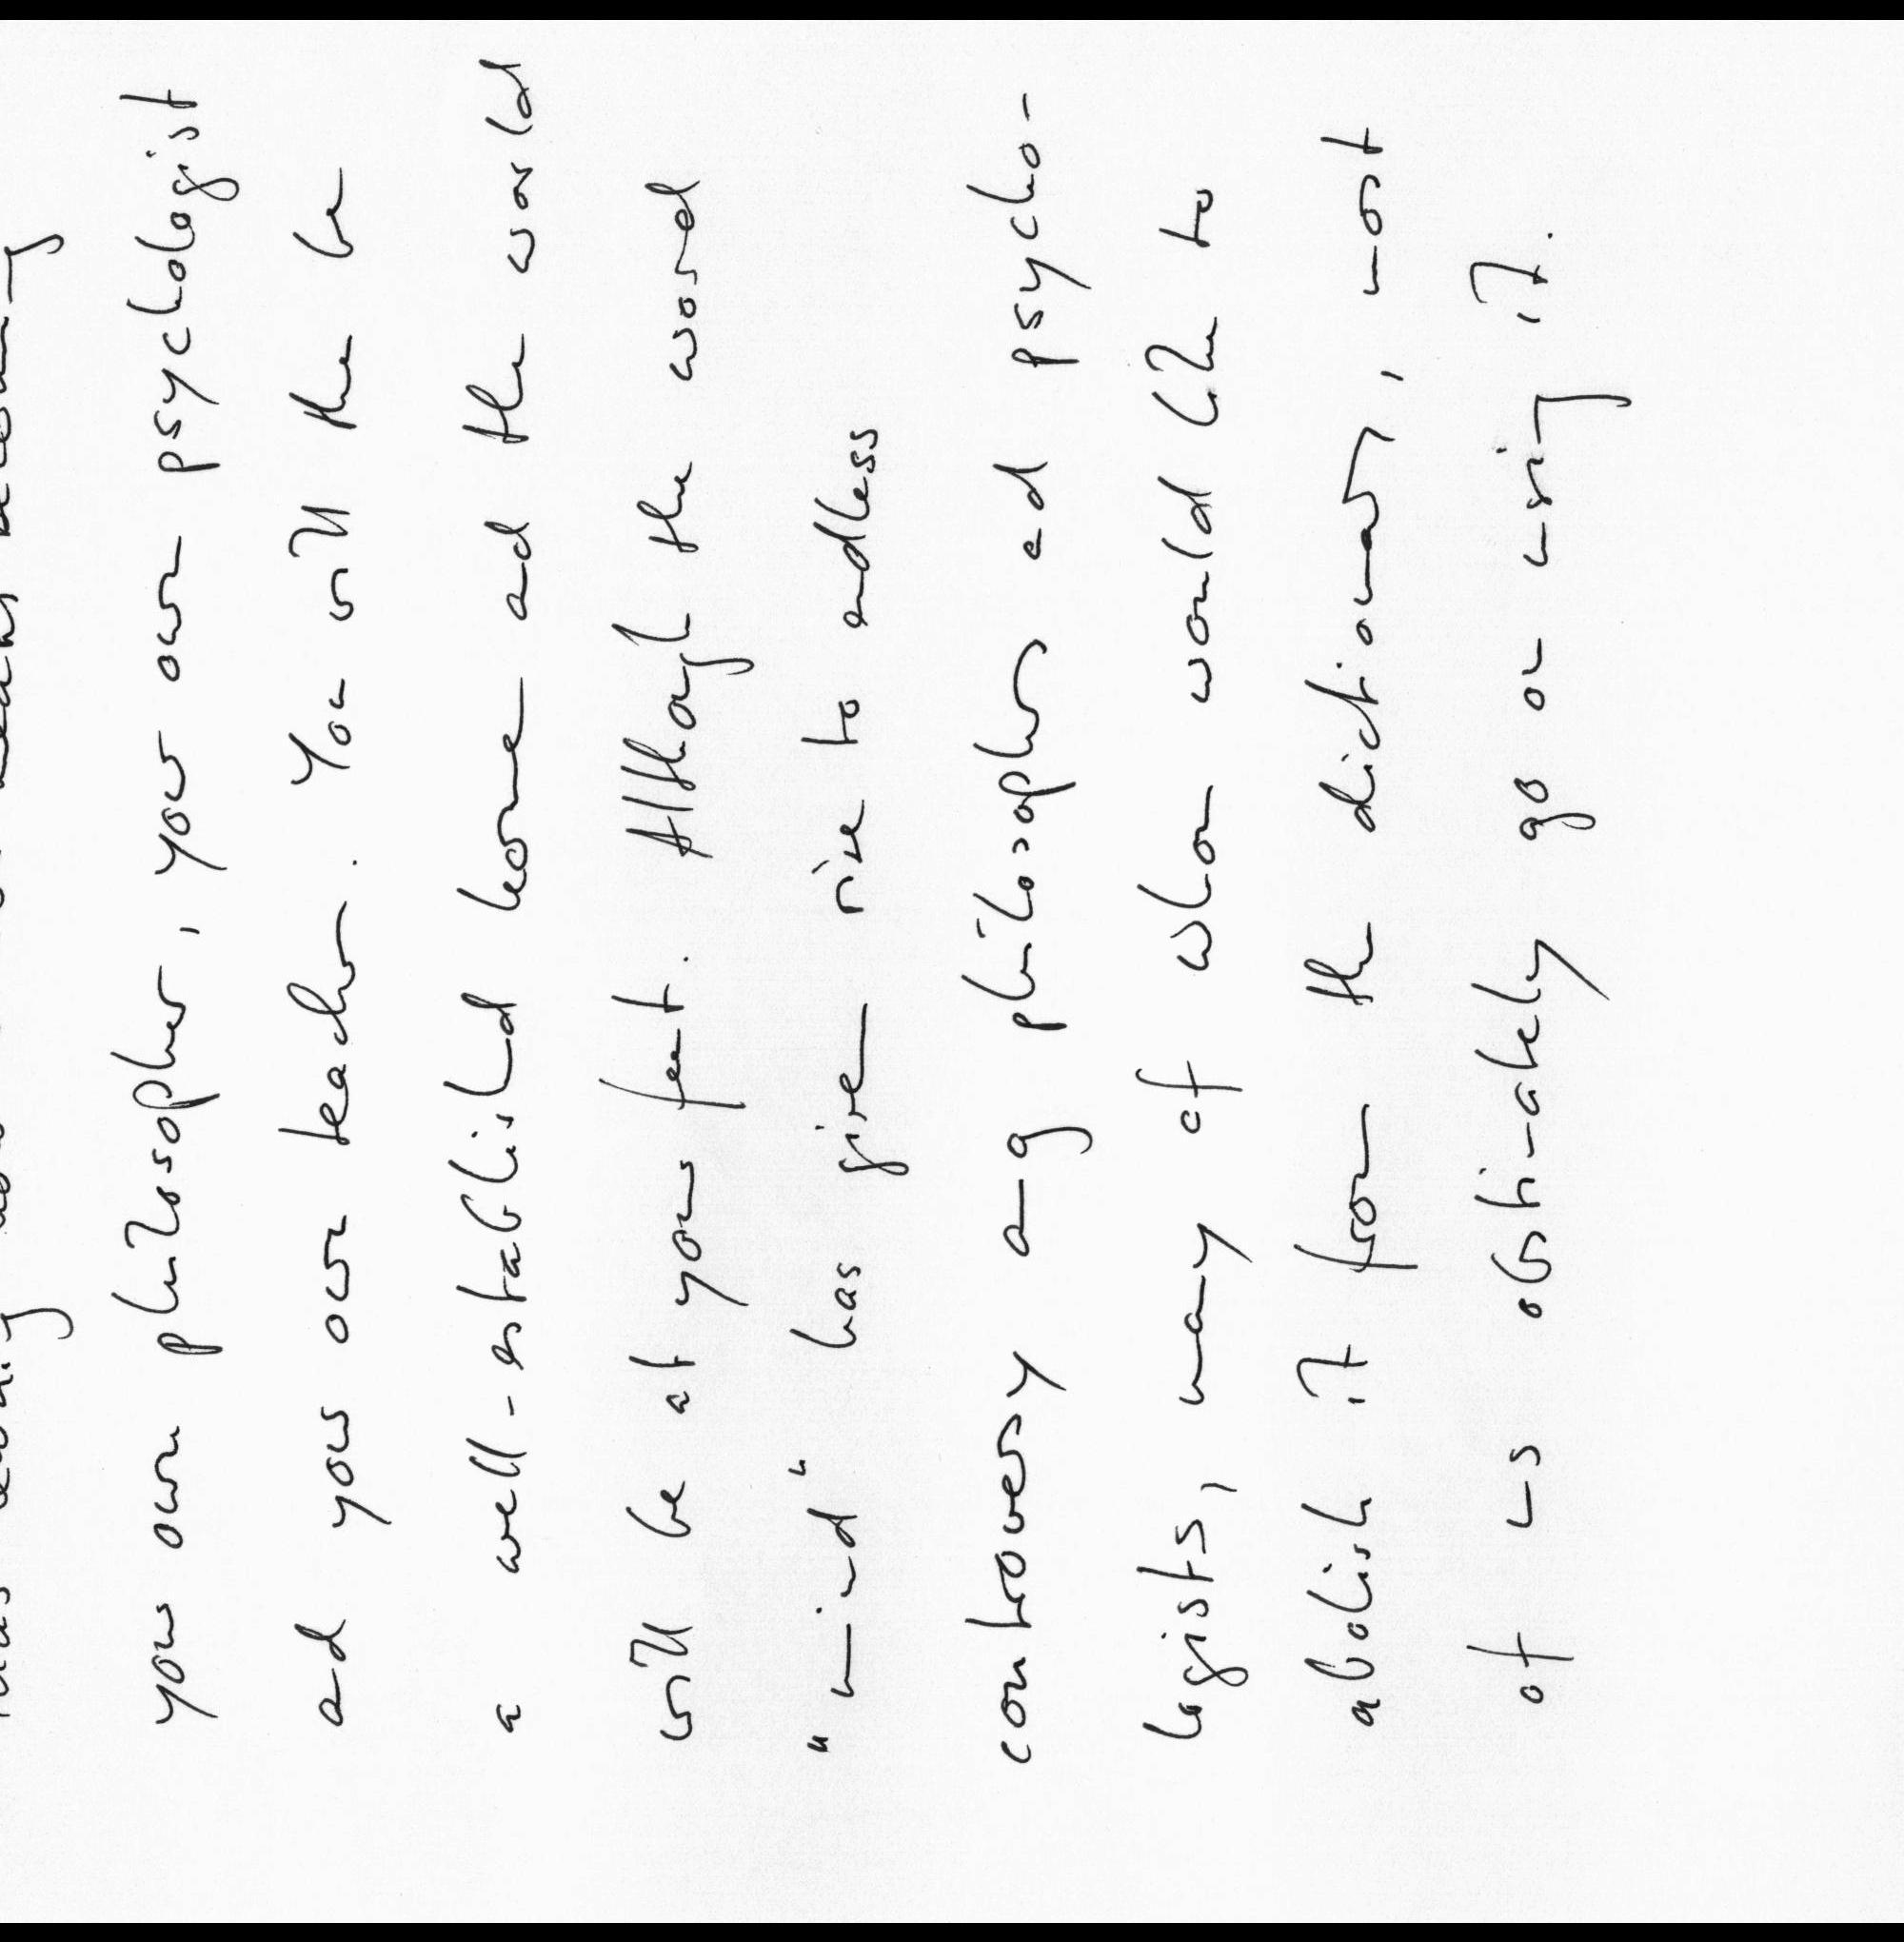 becoming
your own philosopher, your own psychologist
and your own teacher. You will then be
a well-established home and the world
will be at your feet. Although the word
"mind" has given rise to endless
controversy among philosophers and psycho-
logists, many of whom would like to
abolish it from the dictionary, most
of us obstinately go on using it.